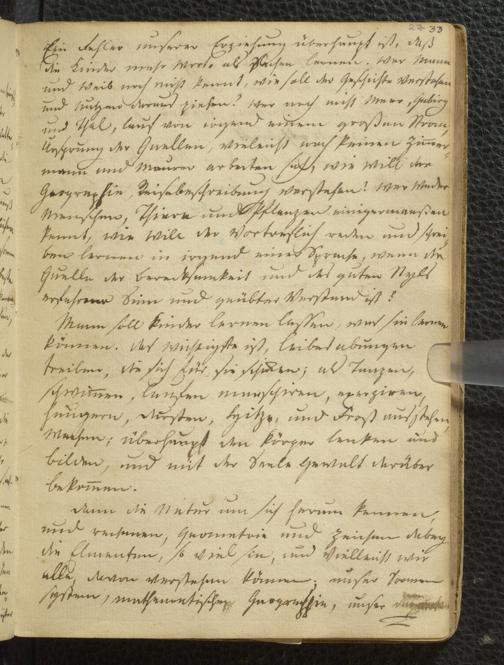 27 33
Ein Fehler unserer Erziehung überhaupt ist, daß
die Kinder mehr Worte als Sachen lernen. Wer Mann
und Weib noch nicht kennt, wie soll der Geschichte verstehen
und Nutzen daraus ziehen? Wer noch nicht Meer, Gebirg
und Thal, lauf von irgend einem großen Strom,
Ursprung der Quellen, vieleicht noch keinen Zimmer-
mann und Maurer arbeiten sah, wie will der
Geographie, Reisebeschreibung verstehen? Wer weder
Menschen, Thiere und Pflanzen einigermaaßen
kennt, wie will der vortreflich reden und schrei
ben lernen in irgend einer Sprache, wenn die
Quelle der Beredtsamkeit und des guten Styls
erfahrner Sinn und geübter Verstand ist?
Mann soll Kinder lernen lassen, was sie lernen
können. Das wichtigste ist, Leibesübungen
treiben, die sich für sie schicken; als Tanzen,
schwimmen, laufen marschiren, exerziren,
hungern, dursten, Hitze, und Frost ausstehen,
wachen; überhaupt den Körper lenken und
bilden, und mit der Seele Gewalt darüber
bekommen.
Dann die Natur um sich herum kennen,
und rechnen, Geometrie und zeichnen dabey
die Elementen, so viel sie, und vielleicht wir
alle, davon verstehen können; unser Sonnen
system, mathematische Geographie, unser